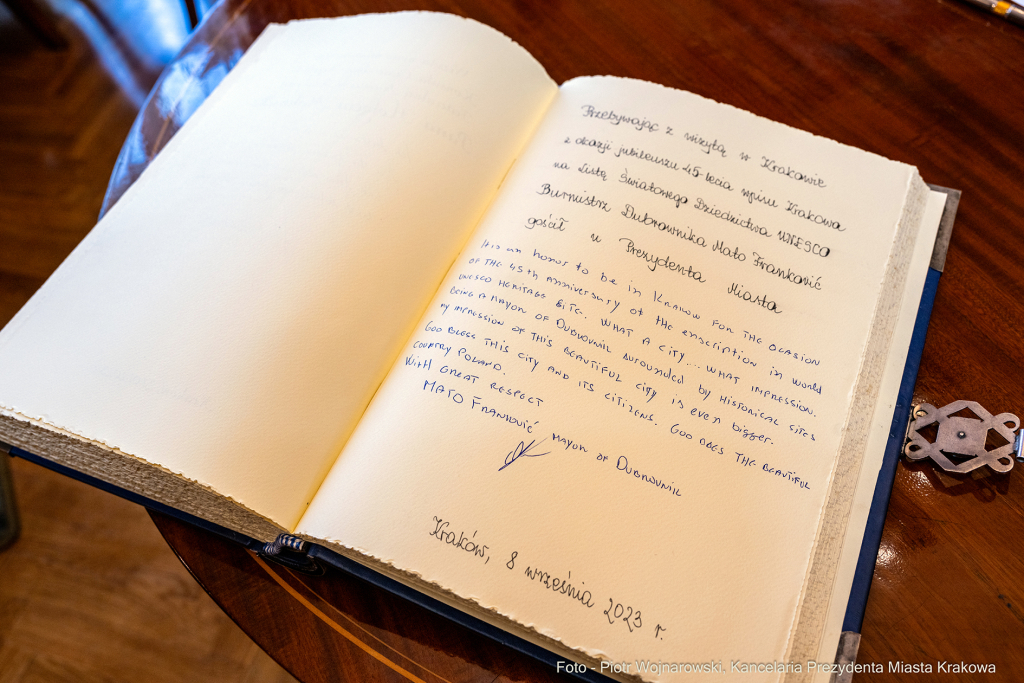 Przebywając z wizytą w Krakowie
z okazji jubileuszu 45-lecia wpisu Krakowa
na Listę Światowego Dziedzictwa UNESCO
Burmistrz Dubrownika Mato Franković
gościł u Prezydenta Miasta
It is an honor to be in Krakow for the ocasion
of the 45th anniversary of the enscription in world
unesco heritage site. What a city... what impression.
Being a mayor of Dubrovnik surounded by historical sites
my impression of this beautiful city is even bigger.
God bless this city and its citizens. God bless the beautiful
country Poland.
With great respect
Mato Franković
mayor of Dubrovnik
Kraków, 8 września 2023 r.
Foto - Piotr Wojnarowski. Kancelaria Prezydenta Miasta Krakowa